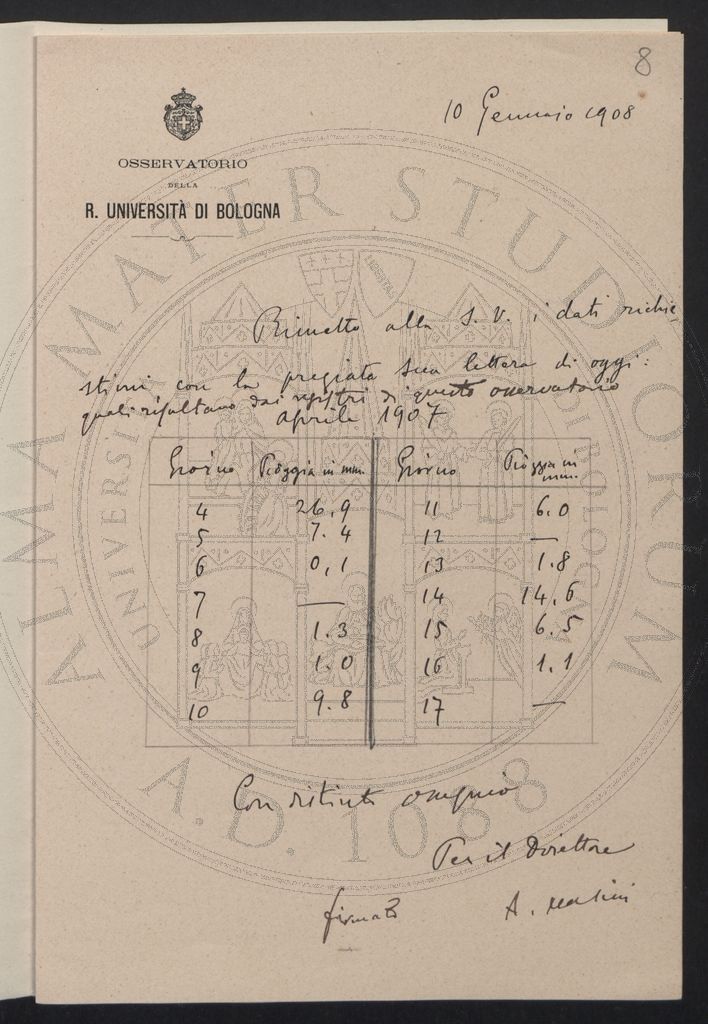 8
10 Gennaio 1908
OSSERVATORIO
DELLA
R. UNIVERSITÀ DI BOLOGNA
Rimetto alla S. V. i dati richie-
stimi con la pregiata Sua lettera di oggi:
quali risultano dai registri di questo osservatorio
aprile 1907
Giorno Pioggia in mm. Giorno Pioggia in mm.
4 26,9 11 6.0
5 7.4 12 —
6 0,1 13 1.8
7 — 14 14,6
8 1.3 15 6.5
9 1.0 16 1.1
10 9.8 17 —
Con distinto ossequio
Per il Direttore
firmato A.
ALMA MATER STUDIORUM
A.D. 1088